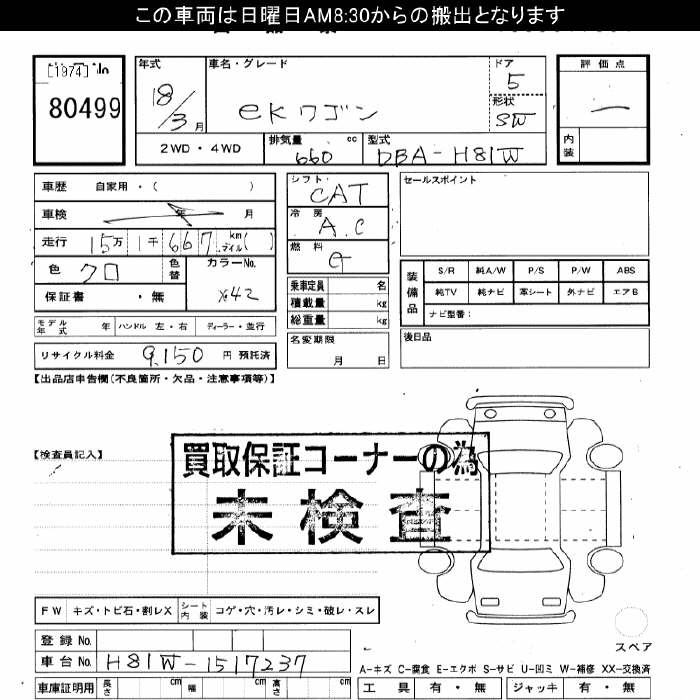 この車両は日曜日AM8:30からの搬出となります
[1974] No
80499
年式
18/3月
車名・グレード
ekワゴン
ドア
5
形状
SW
評価点
内装
2WD・4WD
排気量
660 cc
型式
DBA-H81W
車歴 自家用・( )
車検 年 月
走行 15万1千667 km マイル( )
色 クロ
色替
カラーNo.
X42
保証書 ・無
モデル年式 年
ハンドル 左・右
ディーラー・並行
リサイクル料金 9,150 円 預託済
シフト
CAT
冷房
A.C
燃料
G
乗車定員 名
積載量 kg
総重量 kg
名変期限
月 日
セールスポイント
装備品
S/R 純A/W P/S P/W ABS
純TV 純ナビ 革シート 外ナビ エアB
ナビ型番:
後日品
【出品店申告欄(不良箇所・欠品・注意事項等)】
【検査員記入】
買取保証コーナーの為
未検査
FW キズ・トビ石・割レX
シート内装 コゲ・穴・汚レ・シミ・破レ・スレ
登録No.
車台No. H81W-1517237
車庫証明用 長さ cm 幅 cm 高さ cm
スペア
A-キズ C-腐食 E-エクボ S-サビ U-凹ミ W-補修 XX-交換済
工具 有・無
ジャッキ 有・無